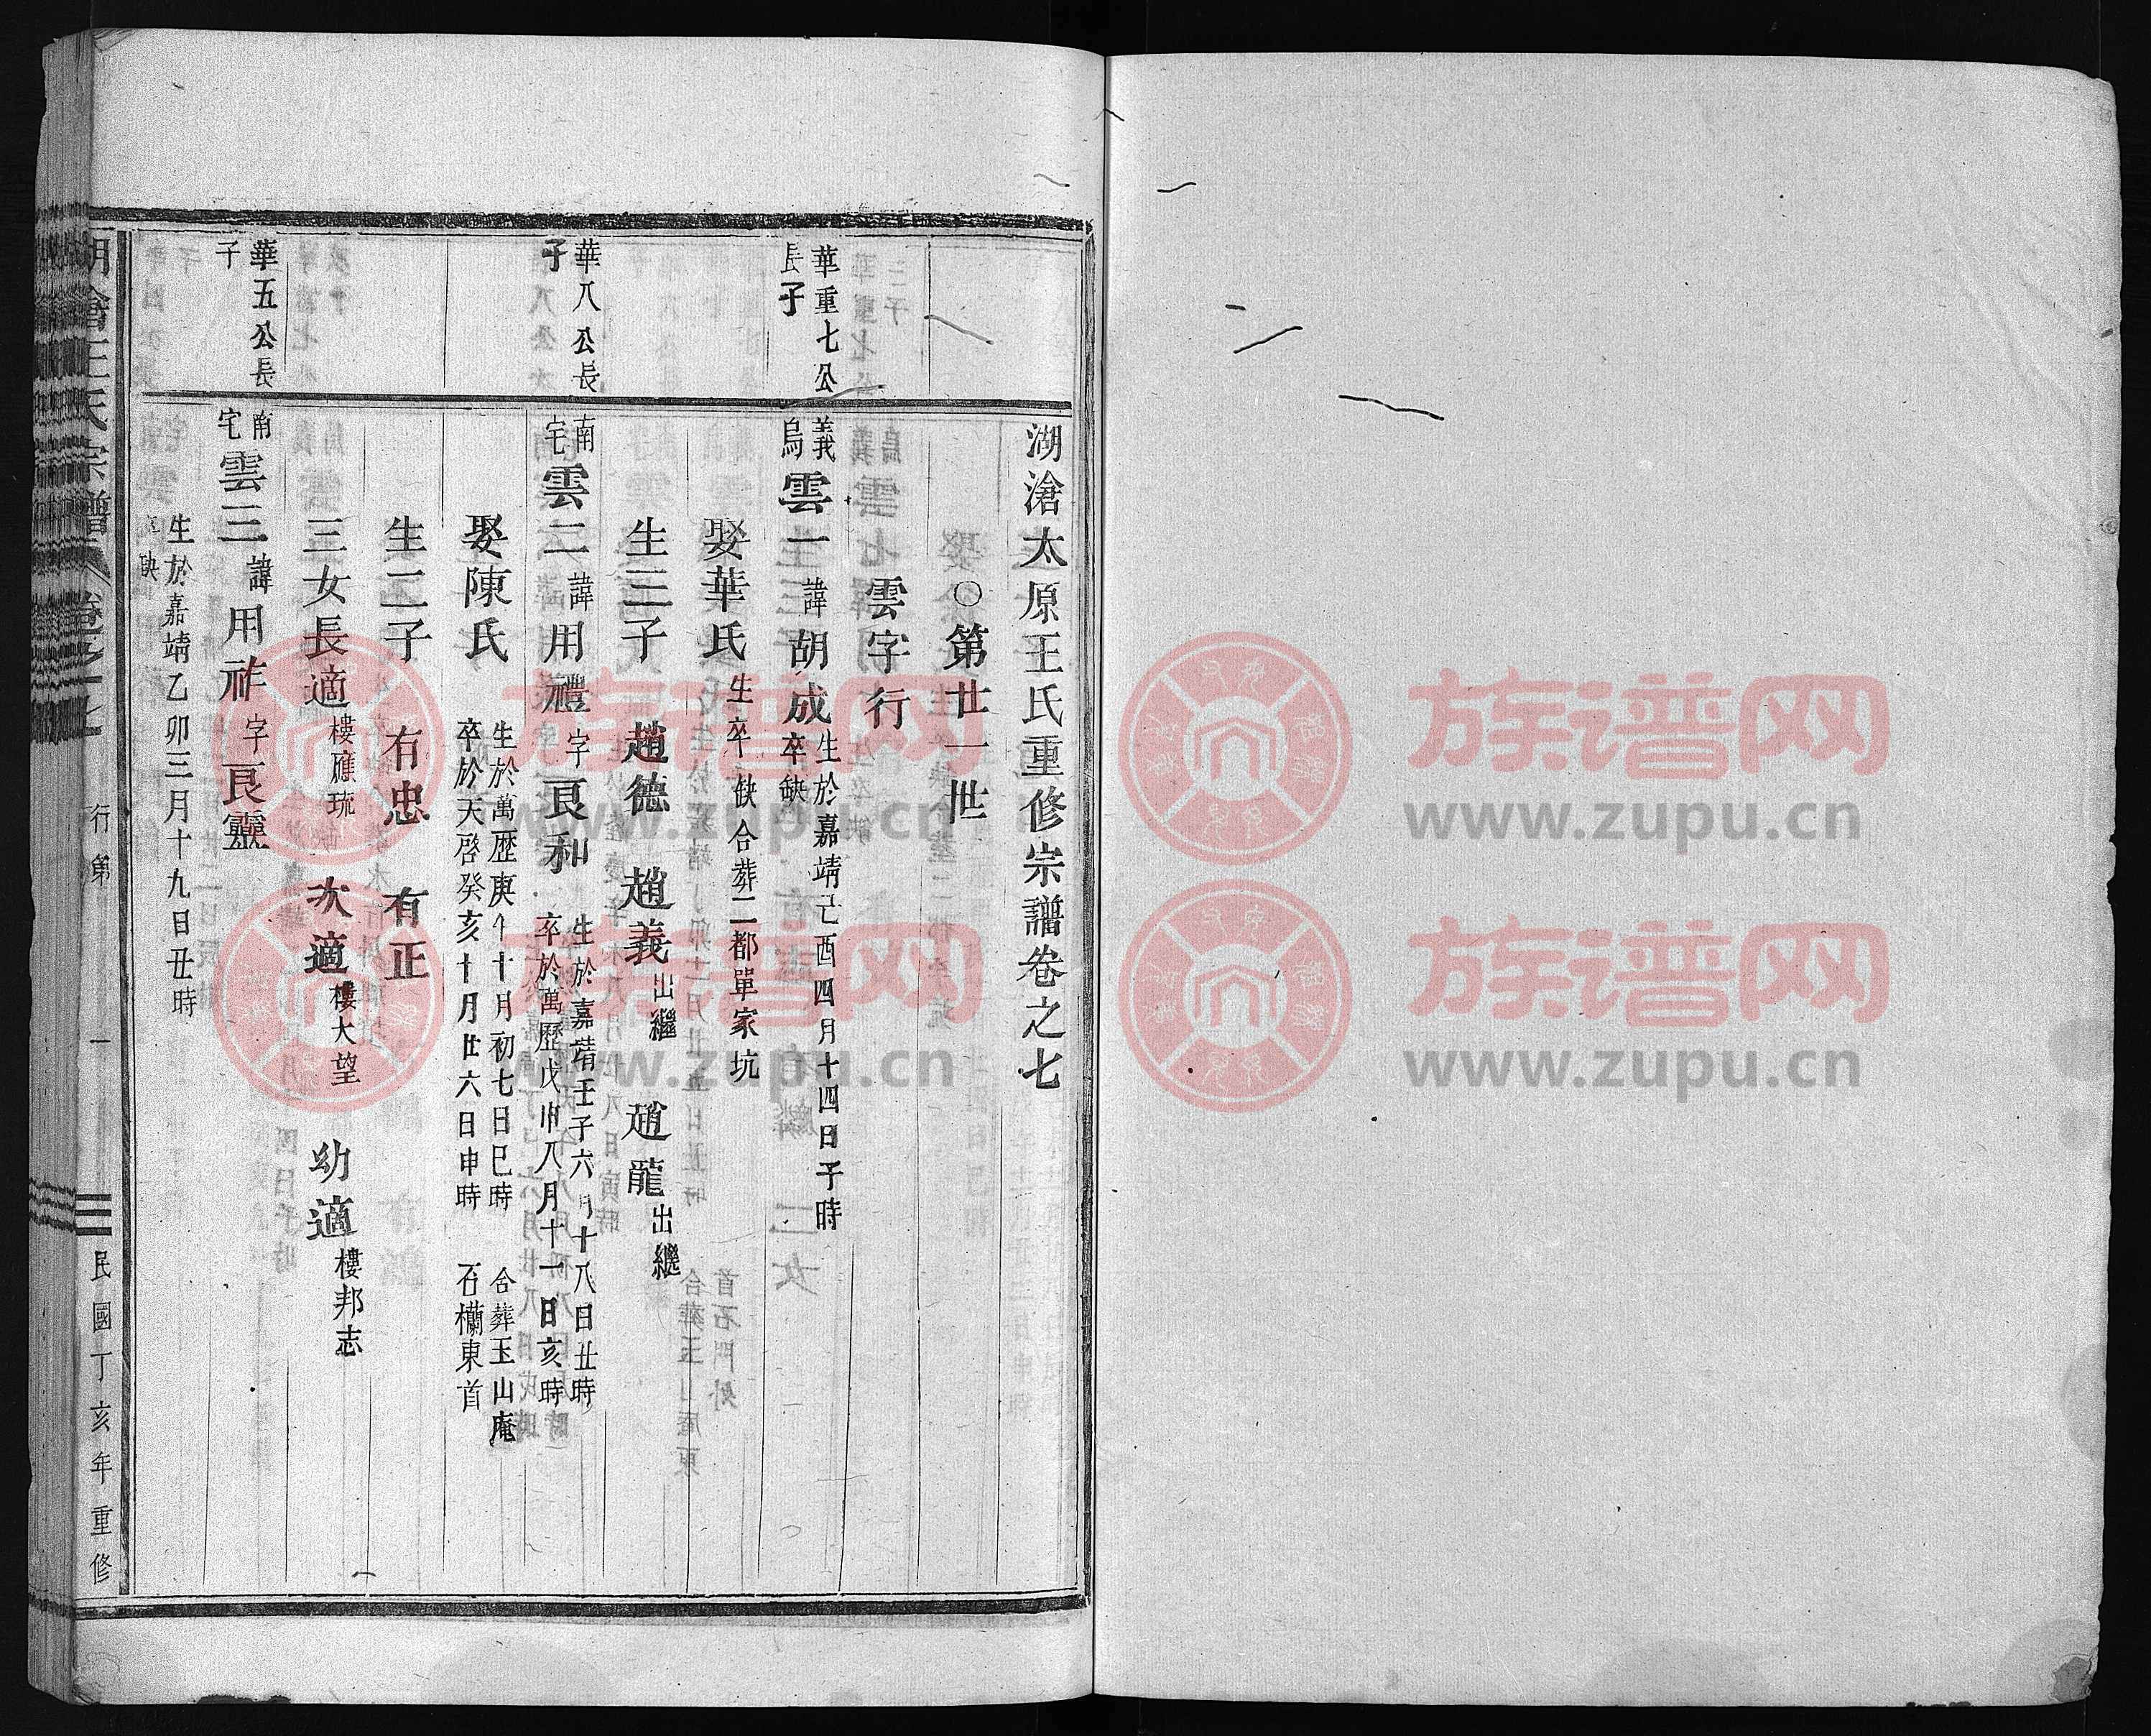 湖滄太原王氏重修宗譜卷之七
○第廿一世
雲字行
華重七公
長子
義烏雲一諱胡成生於嘉靖己酉四月十四日子時
卒缺
娶華氏生卒缺合葬二都單家坑
生三子 趙德 趙義出繼 趙龍出繼
華八公長
子
南宅雲二諱用禮字良和生於嘉靖壬子六月十八日丑時
卒於萬歷戊申八月十一日亥時
娶陳氏生於萬歷庚午十月初七日巳時 合葬玉山庵
卒於天啓癸亥十月廿六日申時 石欄東首
生二子 有忠 有正
三女長適樓應琉 次適樓大望 幼適樓邦志
華五公長
子
南宅雲三諱用祚字良靈
生於嘉靖乙卯三月十九日丑時
缺
湖滄王氏宗譜 卷之七 行第 一 民國丁亥年重修
族谱网
www.zupu.cn
族谱网
www.zupu.cn
族谱网
www.zupu.cn
族谱网
www.zupu.cn